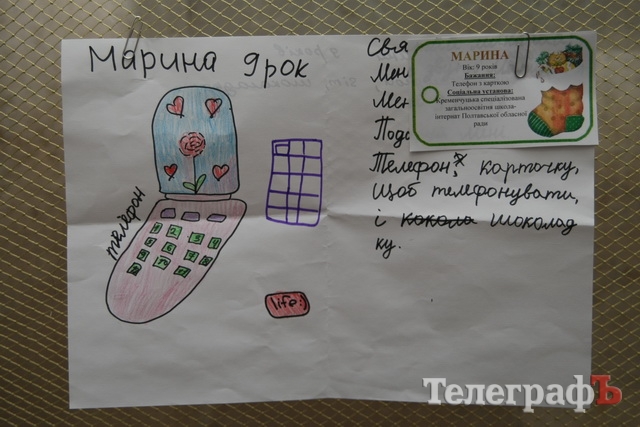 Марина 9 рок
телефон
1 2 3 4
life:)
Свя
Мен
Мен
Пода
Телефон, карточку,
щоб телефонувати,
і кокола шоколад
ку.
МАРИНА
Вік: 9 років
Бажання:
Телефон з карткою
Соціальна установа:
Кременчуцька спеціалізована
загальноосвітня школа-
інтернат Полтавської обласної
ради
ТелеграфЪ